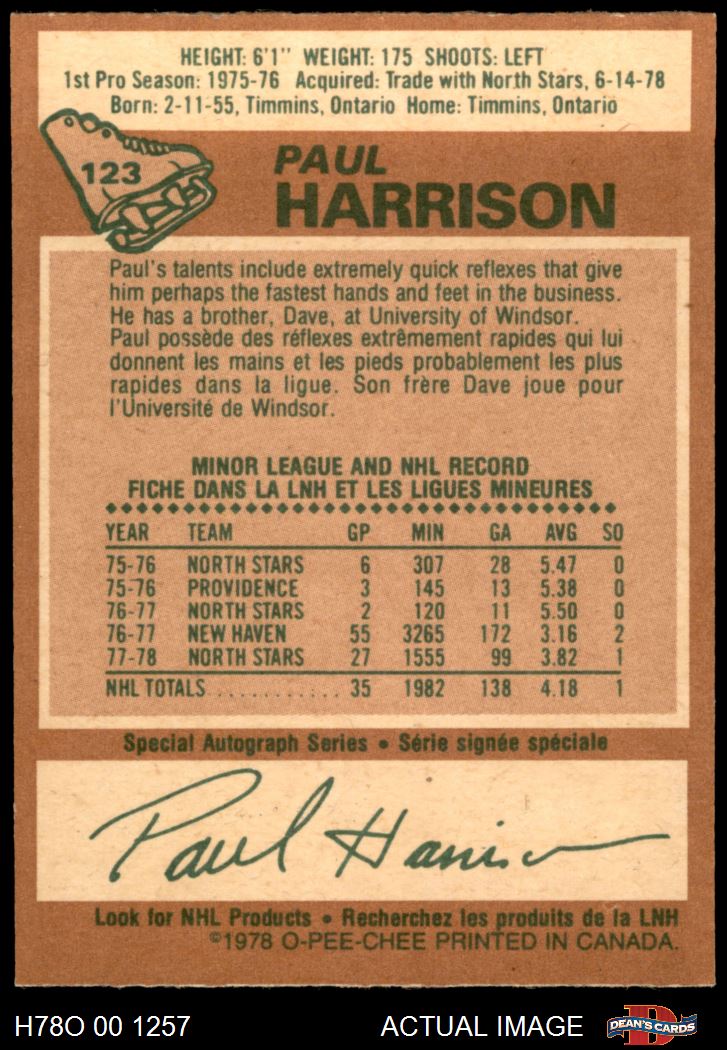 HEIGHT: 6'1" WEIGHT: 175 SHOOTS: LEFT
1st Pro Season: 1975-76 Acquired: Trade with North Stars, 6-14-78
Born: 2-11-55, Timmins, Ontario Home: Timmins, Ontario
123
PAUL
HARRISON
Paul's talents include extremely quick reflexes that give
him perhaps the fastest hands and feet in the business.
He has a brother, Dave, at University of Windsor.
Paul possède des réflexes extrêmement rapides qui lui
donnent les mains et les pieds probablement les plus
rapides dans la ligue. Son frère Dave joue pour
l'Université de Windsor.
MINOR LEAGUE AND NHL RECORD
FICHE DANS LA LNH ET LES LIGUES MINEURES
YEAR TEAM GP MIN GA AVG SO
75-76 NORTH STARS 6 307 28 5.47 0
75-76 PROVIDENCE 3 145 13 5.38 0
76-77 NORTH STARS 2 120 11 5.50 0
76-77 NEW HAVEN 55 3265 172 3.16 2
77-78 NORTH STARS 27 1555 99 3.82 1
NHL TOTALS ........... 35 1982 138 4.18 1
Special Autograph Series • Série signée spéciale
Paul Harrison
Look for NHL Products • Recherchez les produits de la LNH
©1978 O-PEE-CHEE PRINTED IN CANADA.
H78O 00 1257 ACTUAL IMAGE
DEAN'S CARDS